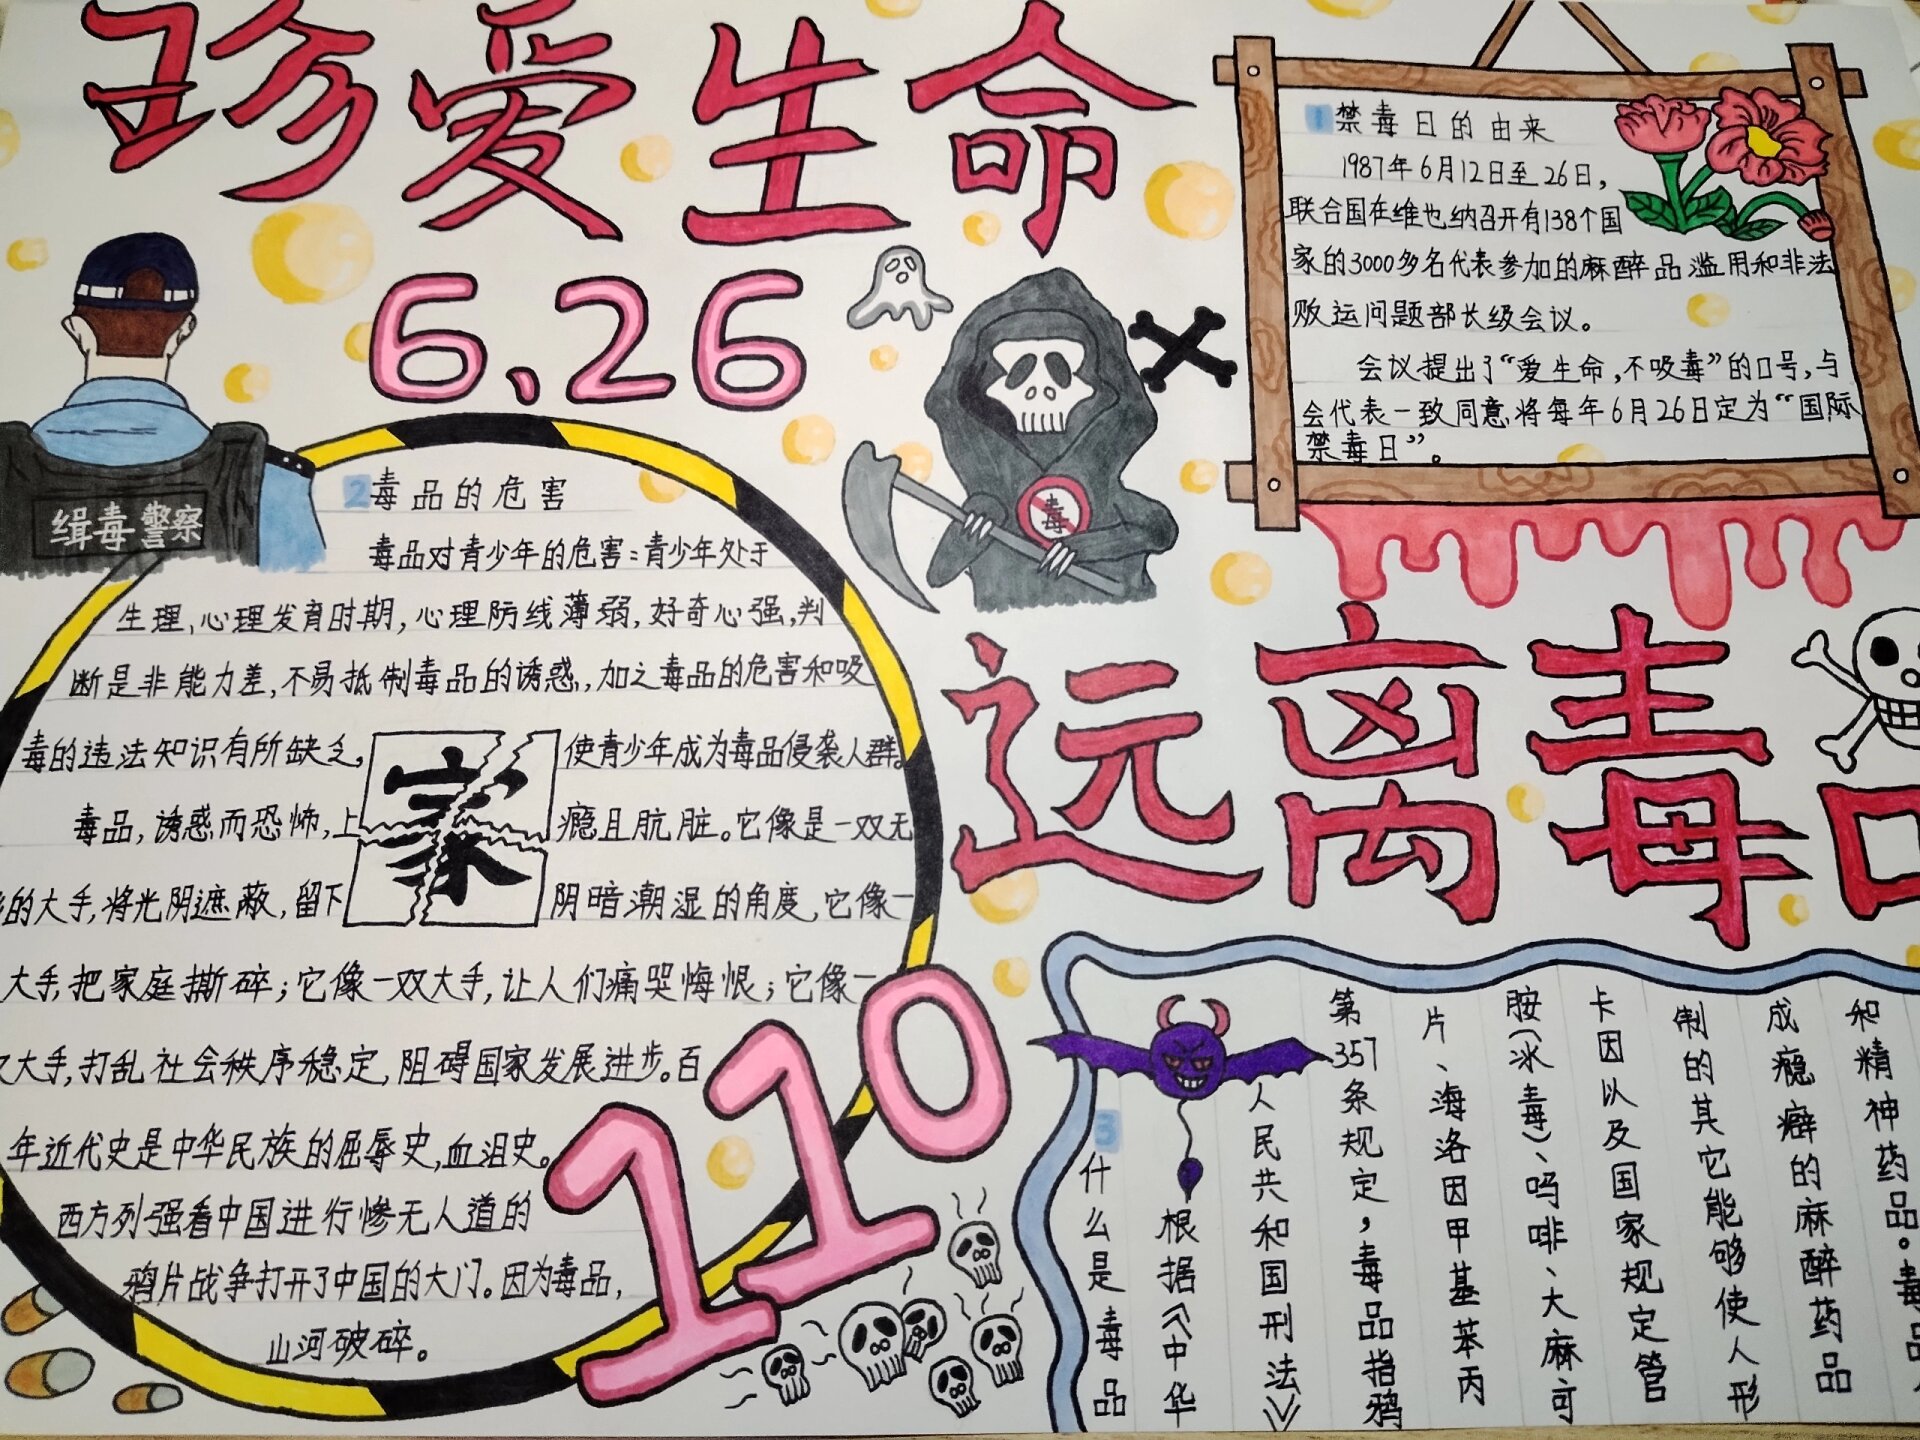 珍爱生命
6、26
缉毒警察
毒
1禁毒日的由来
1987年6月12日至26日，
联合国在维也纳召开有138个国
家的3000多名代表参加的麻醉品滥用和非法
败运问题部长级会议。
会议提出了“爱生命，不吸毒”的口号，与
会代表一致同意将每年6月26日定为“国际
禁毒日”。
远离毒
2毒品的危害
毒品对青少年的危害：青少年处于
生理、心理发育时期，心理防线薄弱，好奇心强，判
断是非能力差，不易抵制毒品的诱惑，加之毒品的危害和吸
毒的违法知识有所缺乏，使青少年成为毒品侵袭人群。
毒品，诱惑而恐怖，上瘾且肮脏。它像是一双无
的大手，将光阴遮蔽，留下阴暗潮湿的角度，它像一
大手，把家庭撕碎；它像一双大手，让人们痛哭悔恨；它像一
大手，打乱社会秩序稳定，阻碍国家发展进步。百
年近代史是中华民族的屈辱史，血泪史。
西方列强看中国进行惨无人道的
鸦片战争打开了中国的大门。因为毒品，
山河破碎。
家
110
3什么是毒品
根据《中华
人民共和国刑法》
第357条规定，毒品指鸦
片、海洛因甲基苯丙
胺（冰毒）、吗啡、大麻可
卡因以及国家规定管
制的其它能够使人形
成瘾癖的麻醉药品
和精神药品。毒品